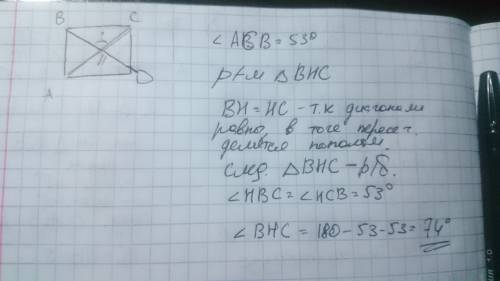 B C
A D
∠ACB = 53°
р/м △BHC
BH = HC - т.к диагонали
равны, в точе пересеч.
делятся пополам.
след. △BHC - р/б.
∠HBC = ∠HCB = 53°
∠BHC = 180 - 53 - 53 = 74°